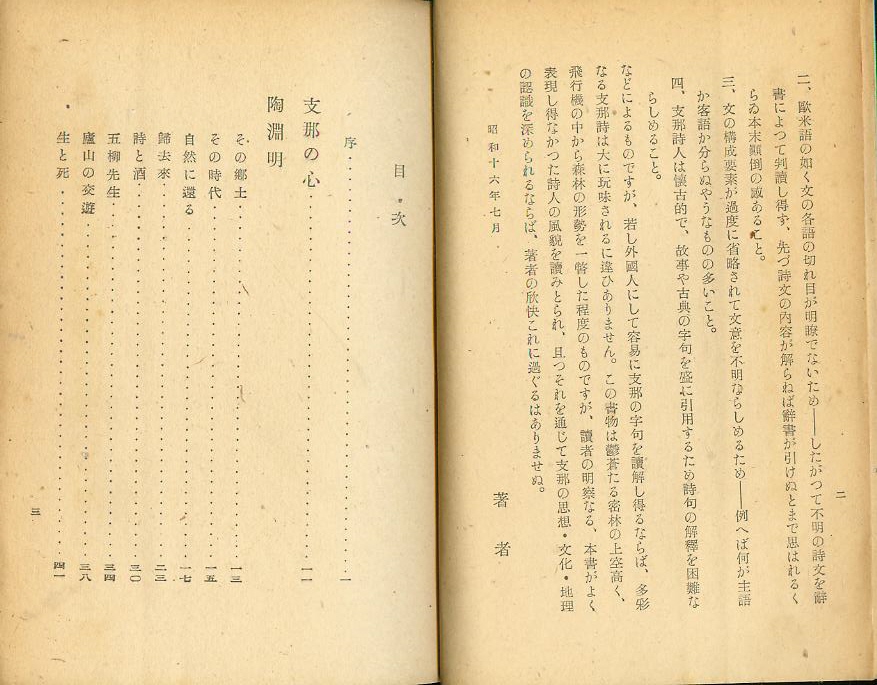 二
二、歐米語の如く文の各語の切れ目が明瞭でないため――したがつて不明の詩文を辭
書によつて判讀し得ず、先づ詩文の内容が解らねば辭書が引けぬとまで思はれるく
らゐ本末顚倒の感あること。
三、文の構成要素が過度に省略されて文意を不明ならしめるため――例へば何が主語
か客語か分らぬやうなものの多いこと。
四、支那詩人は懷古的で、故事や古典の字句を盛に引用するため詩句の解釋を困難な
らしめること。
などによるものですが、若し外國人にして容易に支那の字句を讀解し得るならば、多彩
なる支那詩は大に玩味されるに違ひありません。この書物は鬱蒼たる密林の上空高く、
飛行機の中から森林の形勢を一瞥した程度のものですが、讀者の明察なる、本書がよく
表現し得なかつた詩人の風貌を讀みとられ、且つそれを通じて支那の思想・文化・地理
の認識を深められるならば、著者の欣快これに過ぐるはありませぬ。
昭和十六年七月
著者
目次
序・・・・・・・・・・一
支那の心・・・・・・・・・・一一
陶淵明
その鄕土・・・・・・・・・・一三
その時代・・・・・・・・・・一五
自然に還る・・・・・・・・・・一七
歸去來・・・・・・・・・・二三
詩と酒・・・・・・・・・・三〇
五柳先生・・・・・・・・・・三四
廬山の交遊・・・・・・・・・・三八
生と死・・・・・・・・・・四一
三